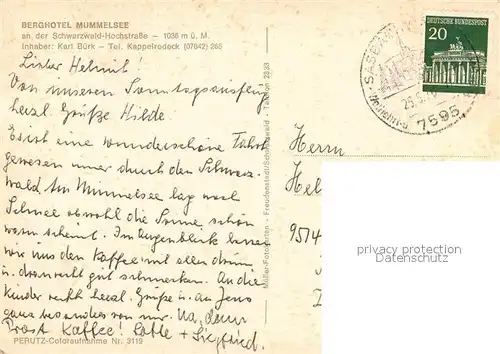 BERGHOTEL MUMMELSEE
an der Schwarzwald-Hochstraße – 1036 m ü. M.
Inhaber: Karl Bürk – Tel. Kappelrodeck (07842) 265
Lieber Helmut!
Von unserem Sonntagsausflug
herzl. Grüße Hilde.
Es ist eine wunderschöne Fahrt
gewesen immer durch den Schwarz-
wald. Am Mummelsee lag noch
Schnee obwohl die Sonne schön
warm scheint. Im Augenblick lassen
wir uns den Kaffee mit allem drum
u. dran recht gut schmecken. An die
Kinder recht herzl. Grüße u. an Jens
ganz besonders von mir. Na, dann
Prost Kaffee! Lotte + Siegfried.
PERUTZ-Coloraufnahme Nr. 3119
Freudenstadt/Schwarzwald - Telefon 2833
DEUTSCHE BUNDESPOST
20
SASBACH
7595
Herrn
Hel
9514
privacy protection
Datenschutz